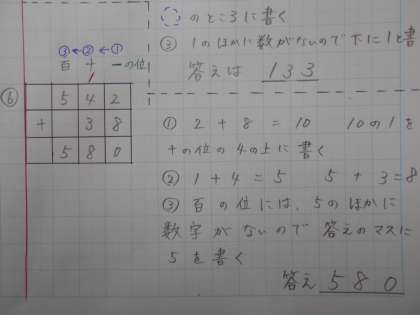 のところ3に書く
③ 1のほかに数がないので下に1と書
答えは 133
③←②←①
百 十 一の位
⑥
1
5 4 2
+ 3 8
5 8 0
① 2 + 8 = 10 10の1を
十の位の4の上に書く
② 1 + 4 = 5 5 + 3 = 8
③ 百の位には、5のほかに
数字がないので 答えのマスに
5を書く
答え 580